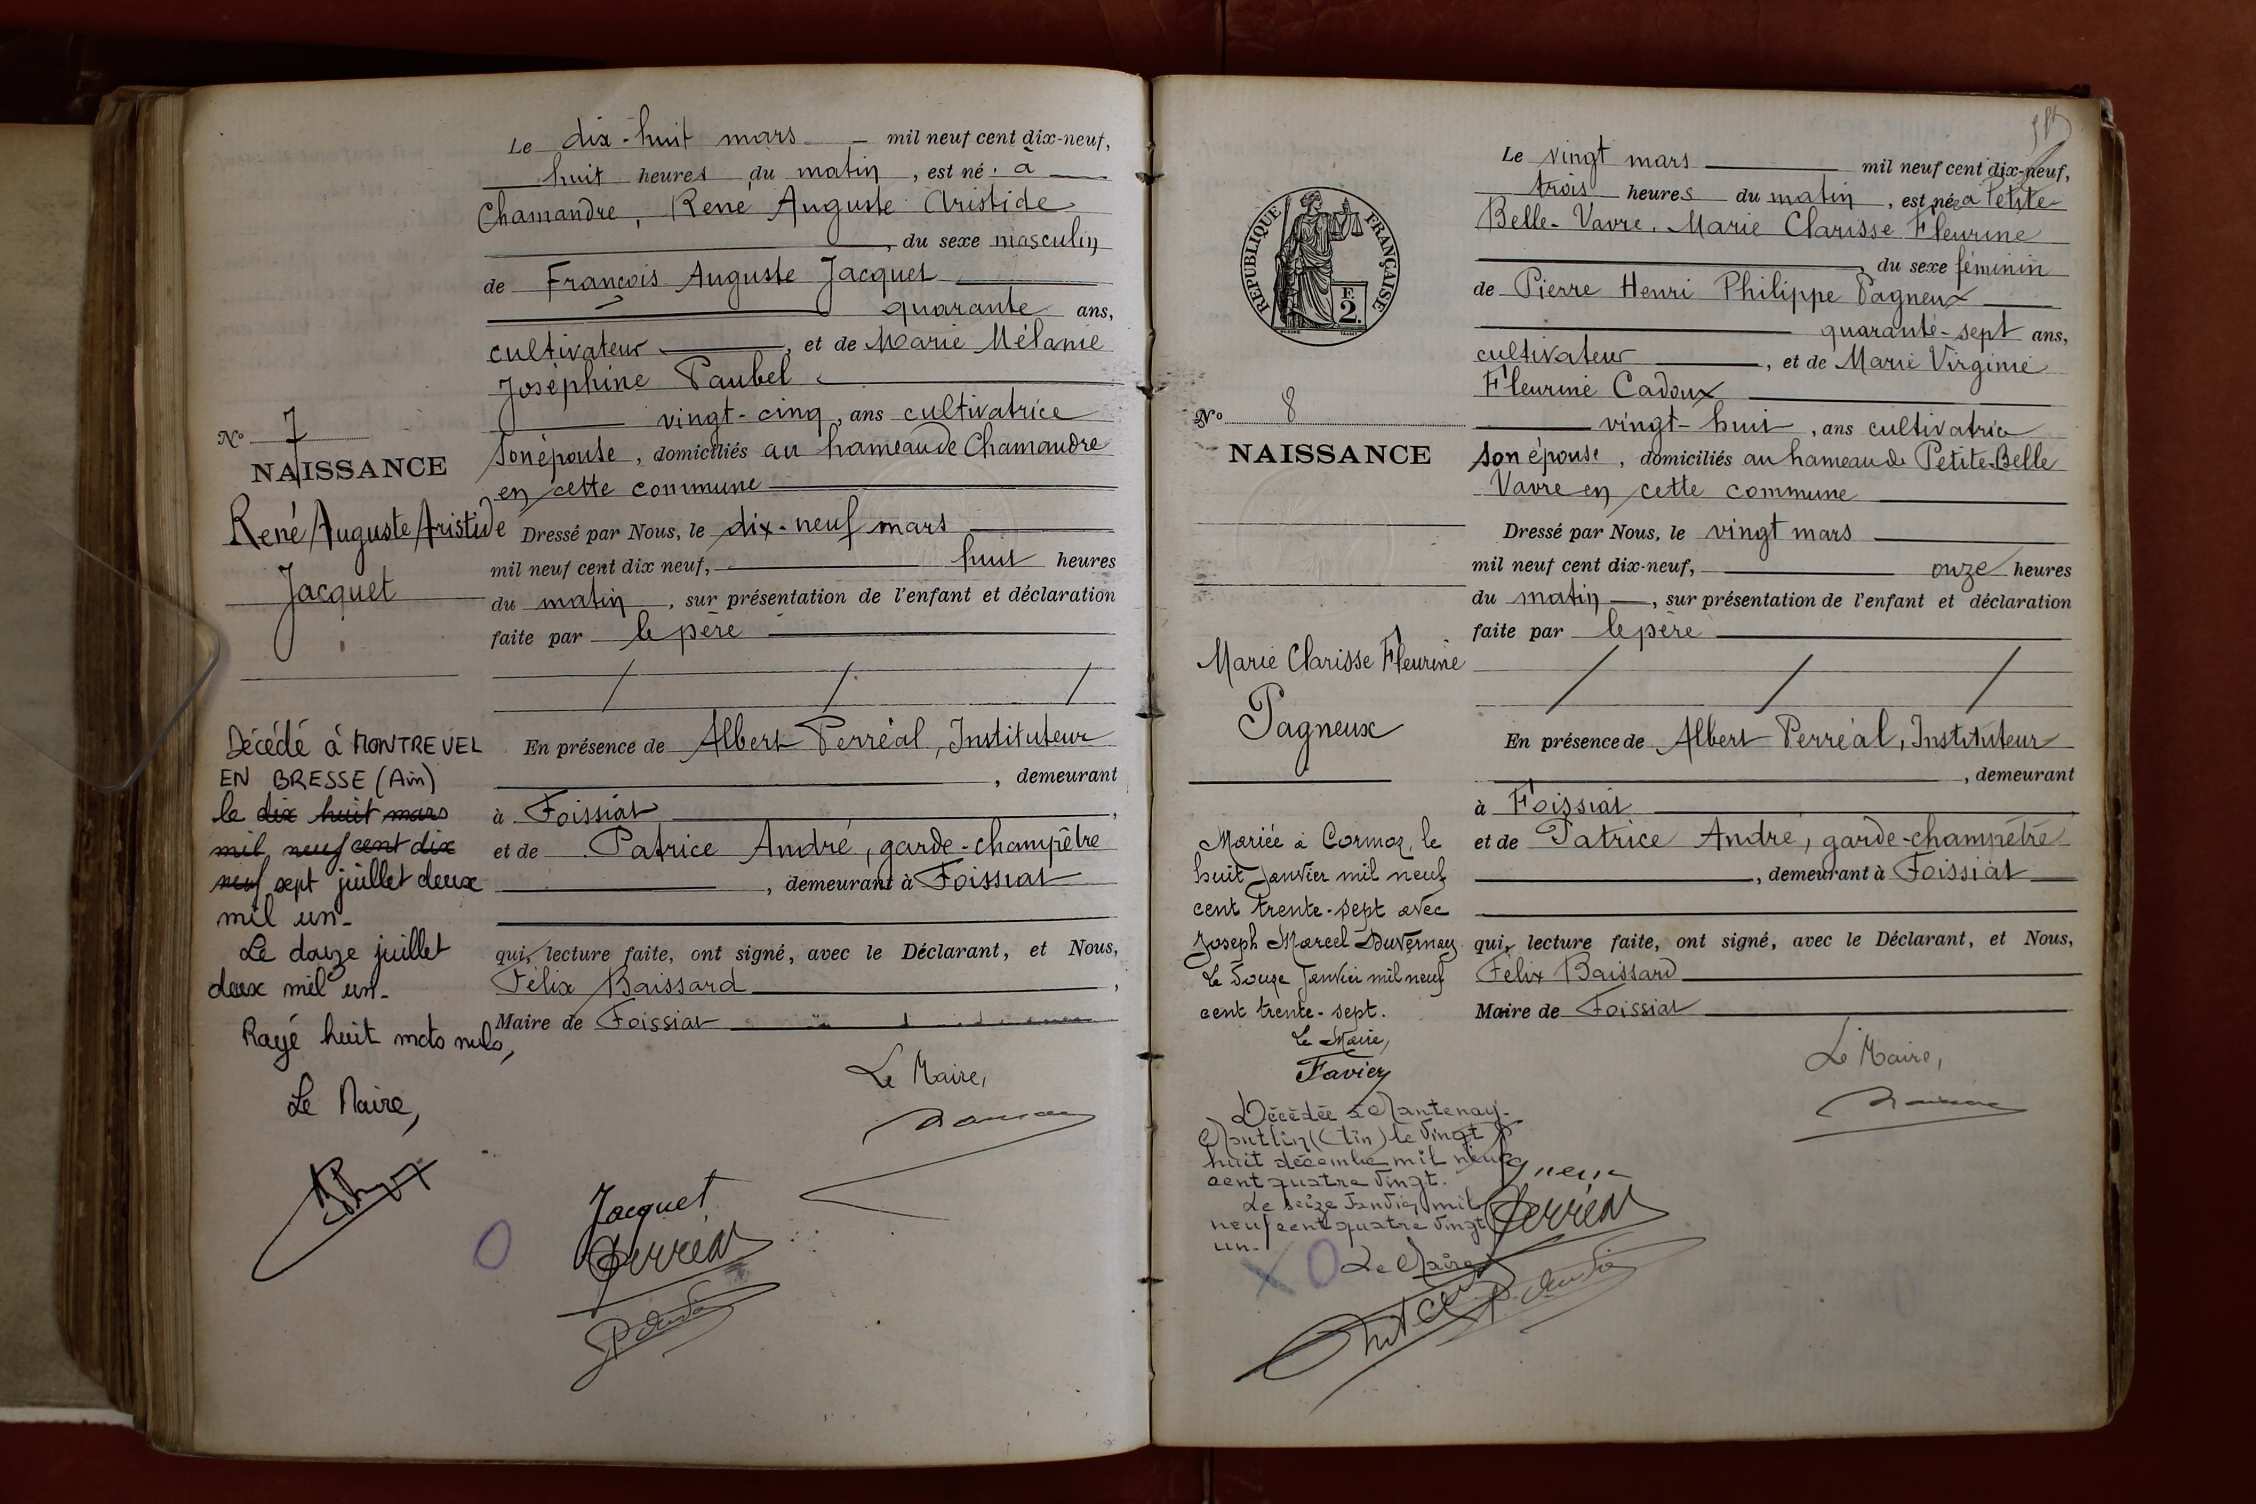 Le dix-huit mars mil neuf cent dix-neuf,
huit heures du matin, est né à
Chamandre, René Auguste Aristide
, du sexe masculin
de François Auguste Jacquet
quarante ans,
cultivateur, et de Marie Mélanie
Joséphine Paubel
vingt-cinq, ans cultivatrice
son épouse, domiciliés au hameau de Chamandre
en cette commune
Dressé par Nous, le dix-neuf mars
mil neuf cent dix neuf, huit heures
du matin, sur présentation de l'enfant et déclaration
faite par le père
En présence de Albert Perréal, Instituteur
, demeurant
à Foissiat,
et de Patrice André, garde-champêtre
, demeurant à Foissiat
qui, lecture faite, ont signé, avec le Déclarant, et Nous,
Félix Baissard,
Maire de Foissiat
Le Maire,
Jacquet
Perréal
No 7
NAISSANCE
René Auguste Aristide
Jacquet
Décédé à MONTREVEL
EN BRESSE (Ain)
le dix huit mars
mil neuf cent dix
neuf sept juillet deux
mil un-
Le douze juillet
deux mil un-
Rayé huit mots nuls,
Le Maire,
RÉPUBLIQUE FRANÇAISE
F.
2.
No 8
NAISSANCE
Marie Clarisse Fleurine
Pagneux
Mariée à Cormoz, le
huit Janvier mil neuf
cent trente-sept avec
Joseph Marcel Duvernay
Le douze Janvier mil neuf
cent trente-sept.
Le Maire,
Favier
Décédée à Mantenay-
Montlin (Ain) le vingt
huit décembre mil neuf
cent quatre vingt.
Le seize Janvier mil
neuf cent quatre vingt
un-
Le Maire
Le vingt mars mil neuf cent dix-neuf,
trois heures du matin, est née à Petite-
Belle-Vavre, Marie Clarisse Fleurine
du sexe féminin
de Pierre Henri Philippe Pagneux
quarante-sept ans,
cultivateur, et de Marie Virginie
Fleurine Cadoux
vingt-huit, ans cultivatrice
son épouse, domiciliés au hameau de Petite-Belle
Vavre en cette commune
Dressé par Nous, le vingt mars
mil neuf cent dix-neuf, onze heures
du matin, sur présentation de l'enfant et déclaration
faite par le père
En présence de Albert Perréal, Instituteur
, demeurant
à Foissiat
et de Patrice André, garde-champêtre
, demeurant à Foissiat
qui, lecture faite, ont signé, avec le Déclarant, et Nous,
Félix Baissard
Maire de Foissiat
Le Maire,
Perréal